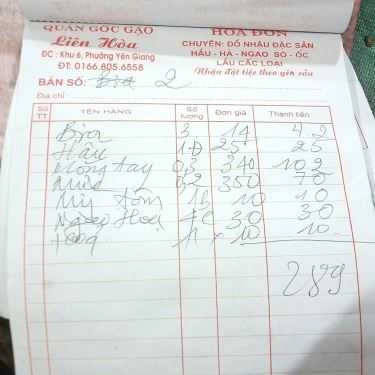 QUÁN GỐC GẠO
Liên Hòa
ĐC: Khu 6, Phường Yên Giang
ĐT: 0166.805.6558
HÓA ĐƠN
CHUYÊN: ĐỒ NHẬU ĐẶC SẢN
HÀU - HÀ - NGAO SÒ - ỐC
LẨU CÁC LOẠI
Nhận đặt tiệc theo yêu cầu
BÀN SỐ: 2
Địa chỉ
Số TT TÊN HÀNG Số lượng Đơn giá Thành tiền
Bia 3 14 42
Hàu 25 25
Móng tay 0,3 340 102
Mực 0,2 350 70
Mỳ tôm 10 10
Ngao Hoa 30 30
10 10
289